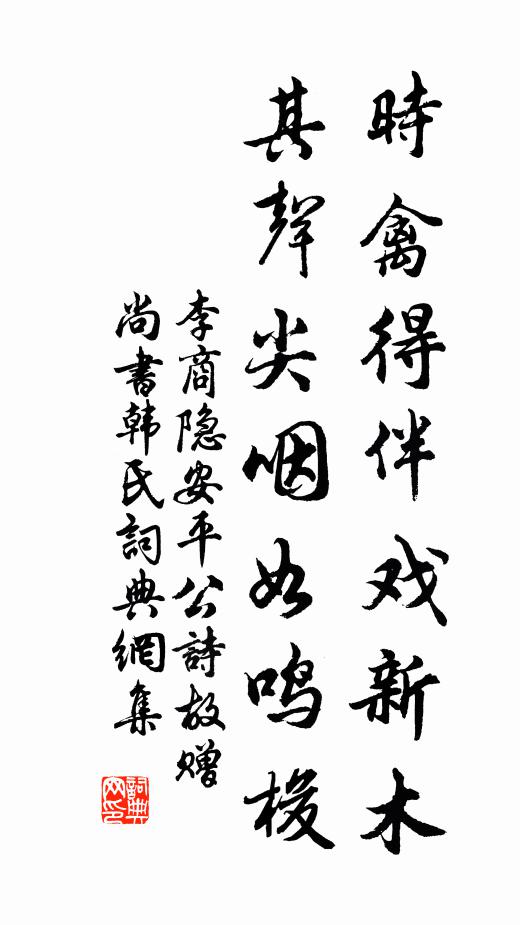 時禽得伴戏新木
其聲尖咽如鳴梭
李商隐安平公詩故赠
尚書韩氏詞典網集
詞典网印